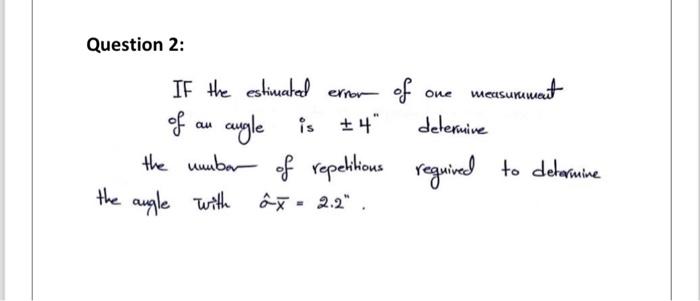 Question 2:
IF the estimated error of one measurement
of an angle is ±4" determine
the number of repetitions required to determine
the angle with σ̂x̄ = 2.2".